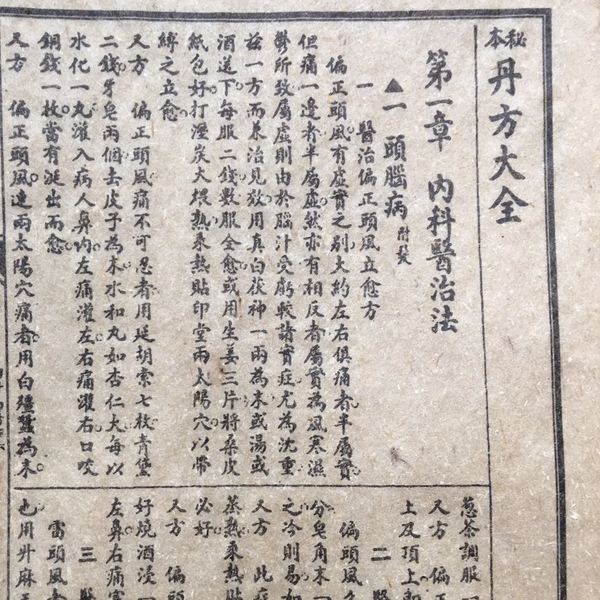 秘本丹方大全
第一章 內科醫治法
▲一 頭腦病 附髮
一 醫治偏正頭風立愈方
偏正頭風有虛實之别大約左右俱痛者半屬實
但痛一邊者半屬虛然亦有相反者屬實為風寒濕
鬱所致屬虛則由於腦汁受虧較諸實症尤為沈重
茲一方而兼治見效用真白茯神一兩為末或湯或
酒送下每服二錢數服全愈或用生姜三片將桑皮
紙包好打溼炭火煨熟乘熱貼印堂兩太陽穴以帶
縛之立愈
又方 偏正頭風痛不可忍者用延胡索七枚青黛
二錢牙皂兩個去皮子為末水和丸如杏仁大每以
水化一丸灌入病人鼻內左痛灌左右痛灌右口咬
銅錢一枚當有涎出而愈
又方 偏正頭風連兩太陽穴痛者用白殭蠶為末
葱茶調服一
又方 偏正
上及頂上
二 醫
偏頭風
分皂角末一
之冷則易如
又方 此症
蒸熟乘熱貼
必好
又方 偏頭
好燒酒浸一
左鼻右痛塞
三 醫
雷頭風者
也用升麻五